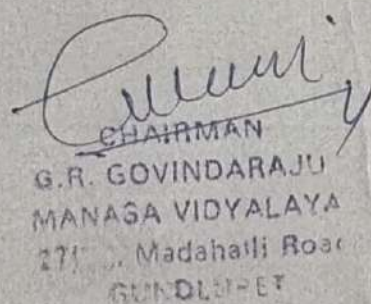 CHAIRMAN
G.R. GOVINDARAJU
MANASA VIDYALAYA
Madahalli Road
GUNDLUPET